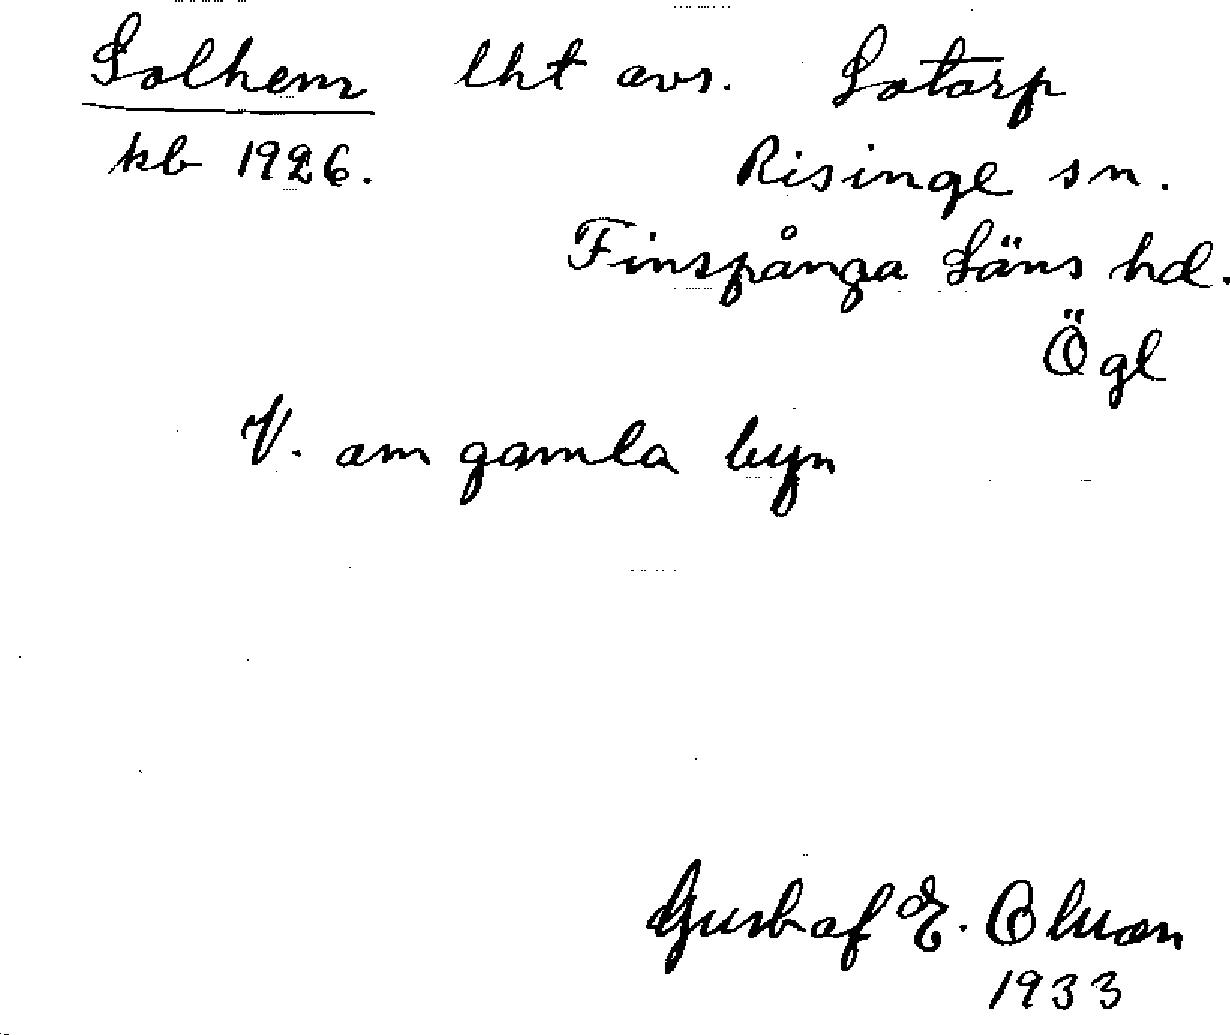 Solhem lht avs. Lotorp
kb 1926. Risinge sn.
Finspånga Läns hd.
Ögl
V. om gamla byn
Gustaf E. Olsson
1933